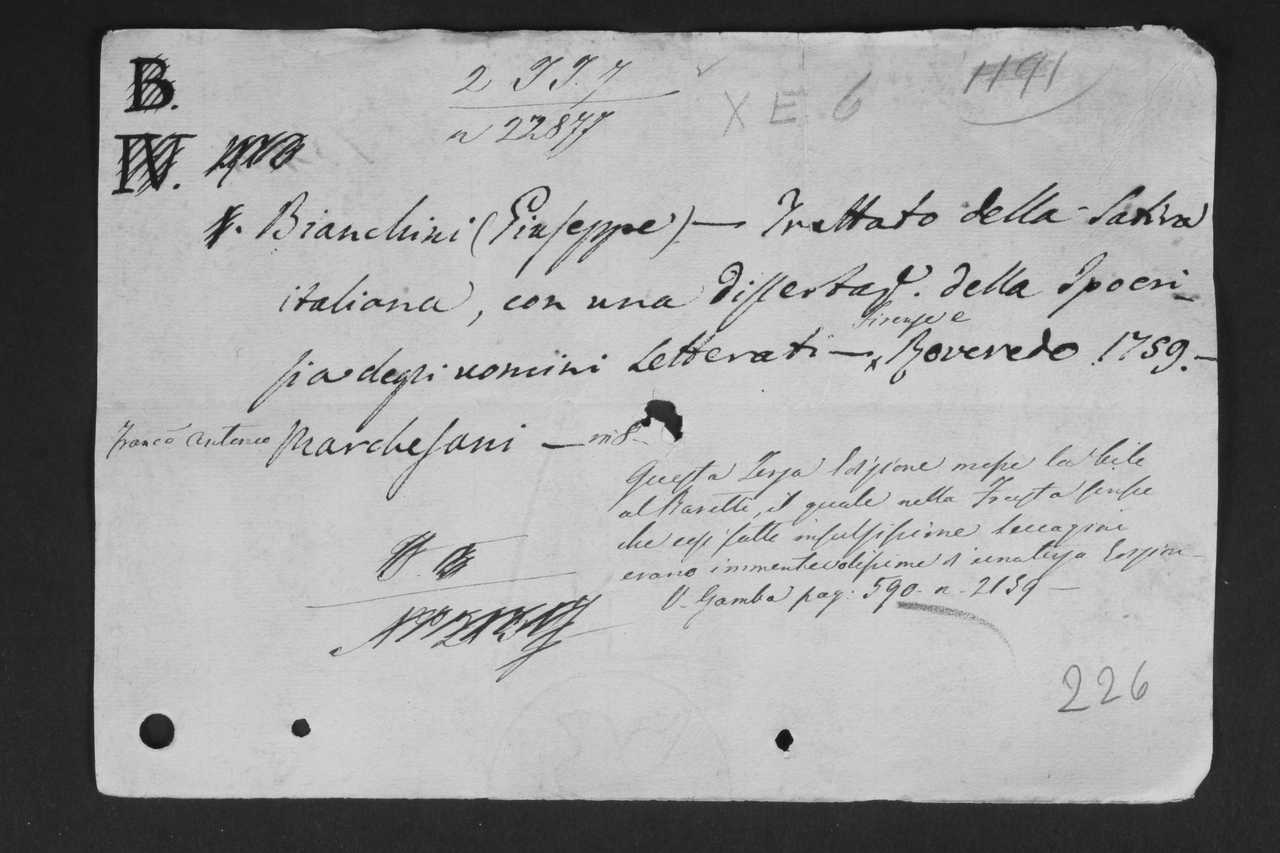 B.
2 II. 7
XE 6
1191
n 22877
IV.
Bianchini (Giuseppe) — Trattato della Satira
italiana, con una dissertaze. della Ipocri-
Firenze e
sia degli uomini Letterati — x Roveredo 1759. —
Franco Antonio Marchesani — in 8 —
Questa Terza Edizione mosse la bile
al Baretti, il quale nella Frusta scrisse
che così fatte insulsissime seccagini
erano immeritevolissime d'una terza Edizion
V. Gamba pag: 590. n. 2159 —
No 2159
226